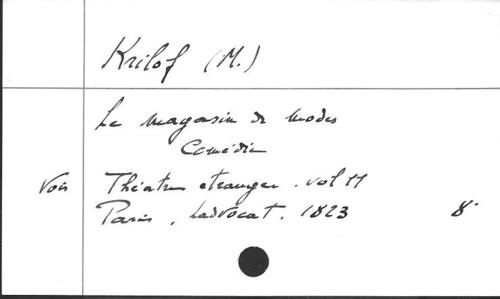 Krilof (M.)
Le magasin de modes
Comédie
Voir Théatre etranger. vol 11
Paris, Ladvocat. 1823 8°